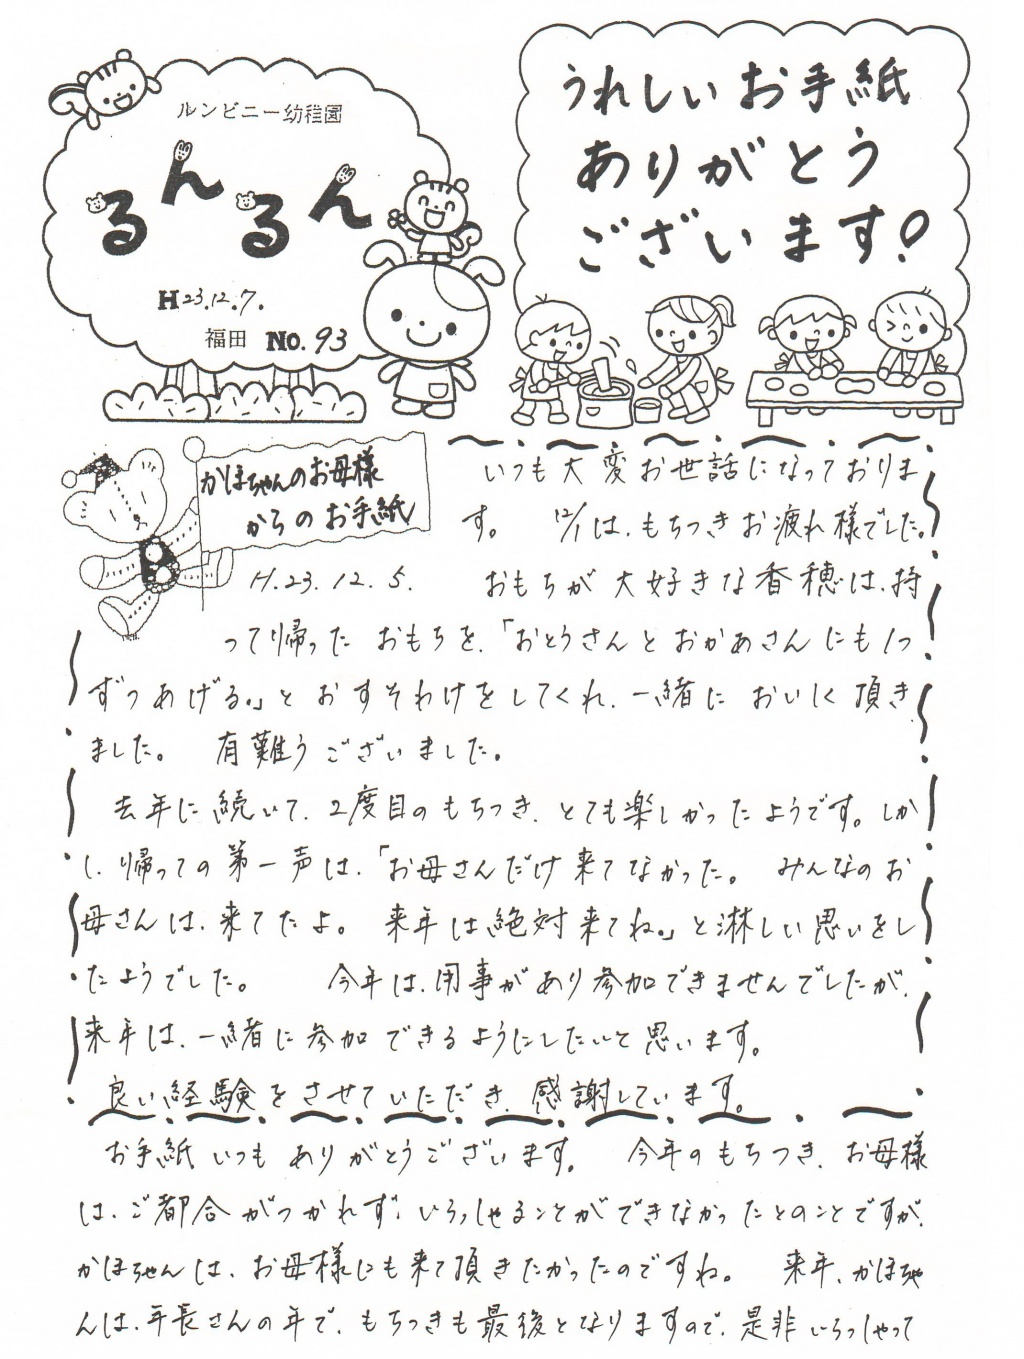 ルンビニー幼稚園
るんるん
H23.12.7.
福田 No.93
うれしいお手紙
ありがとう
ございます!
かほちゃんのお母様
からのお手紙
H.23.12.5.
いつも大変お世話になっておりま
す。 12/1は、もちつきお疲れ様でした。
おもちが大好きな香穂は、持
って帰ったおもちを、「おとうさんとおかあさんにも1つ
ずつあげる。」とおすそわけをしてくれ、一緒においしく頂き
ました。 有難うございました。
去年に続いて、2度目のもちつき、とても楽しかったようです。しか
し、帰っての第一声は、「お母さんだけ来てなかった。 みんなのお
母さんは、来てたよ。 来年は絶対来てね。」と淋しい思いをし
たようでした。 今年は、用事があり参加できませんでしたが、
来年は、一緒に参加できるようにしたいと思います。
良い経験をさせていただき、感謝しています。
お手紙いつもありがとうございます。 今年のもちつき、お母様
は、ご都合がつかれず、いらっしゃることができなかったとのことですが、
かほちゃんは、お母様にも来て頂きたかったのですね。 来年、かほちゃ
んは、年長さんの年で、もちつきも最後となりますので、是非いらっしゃって